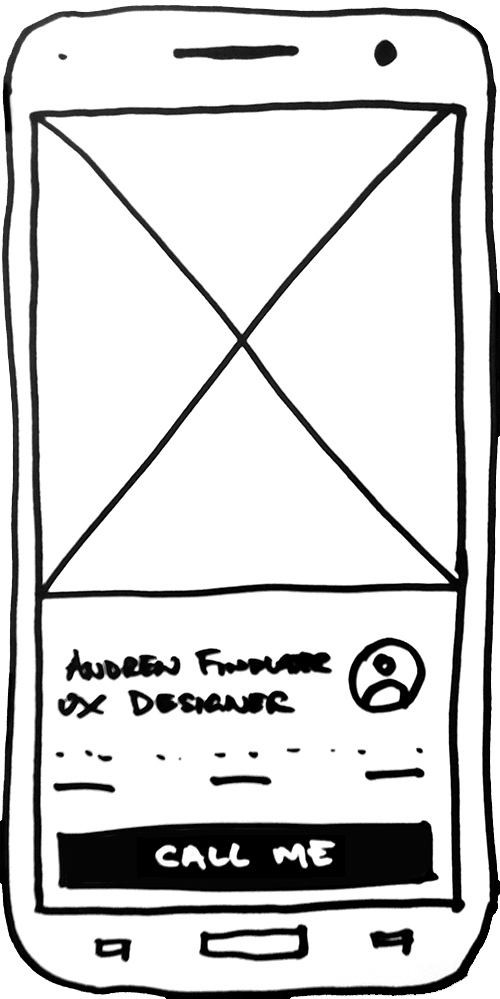 ANDREW FINDLATER
UX DESIGNER
CALL ME